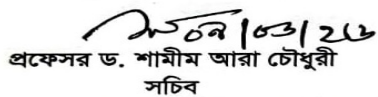 প্রফেসর ড. শামীম আরা চৌধুরী
সচিব